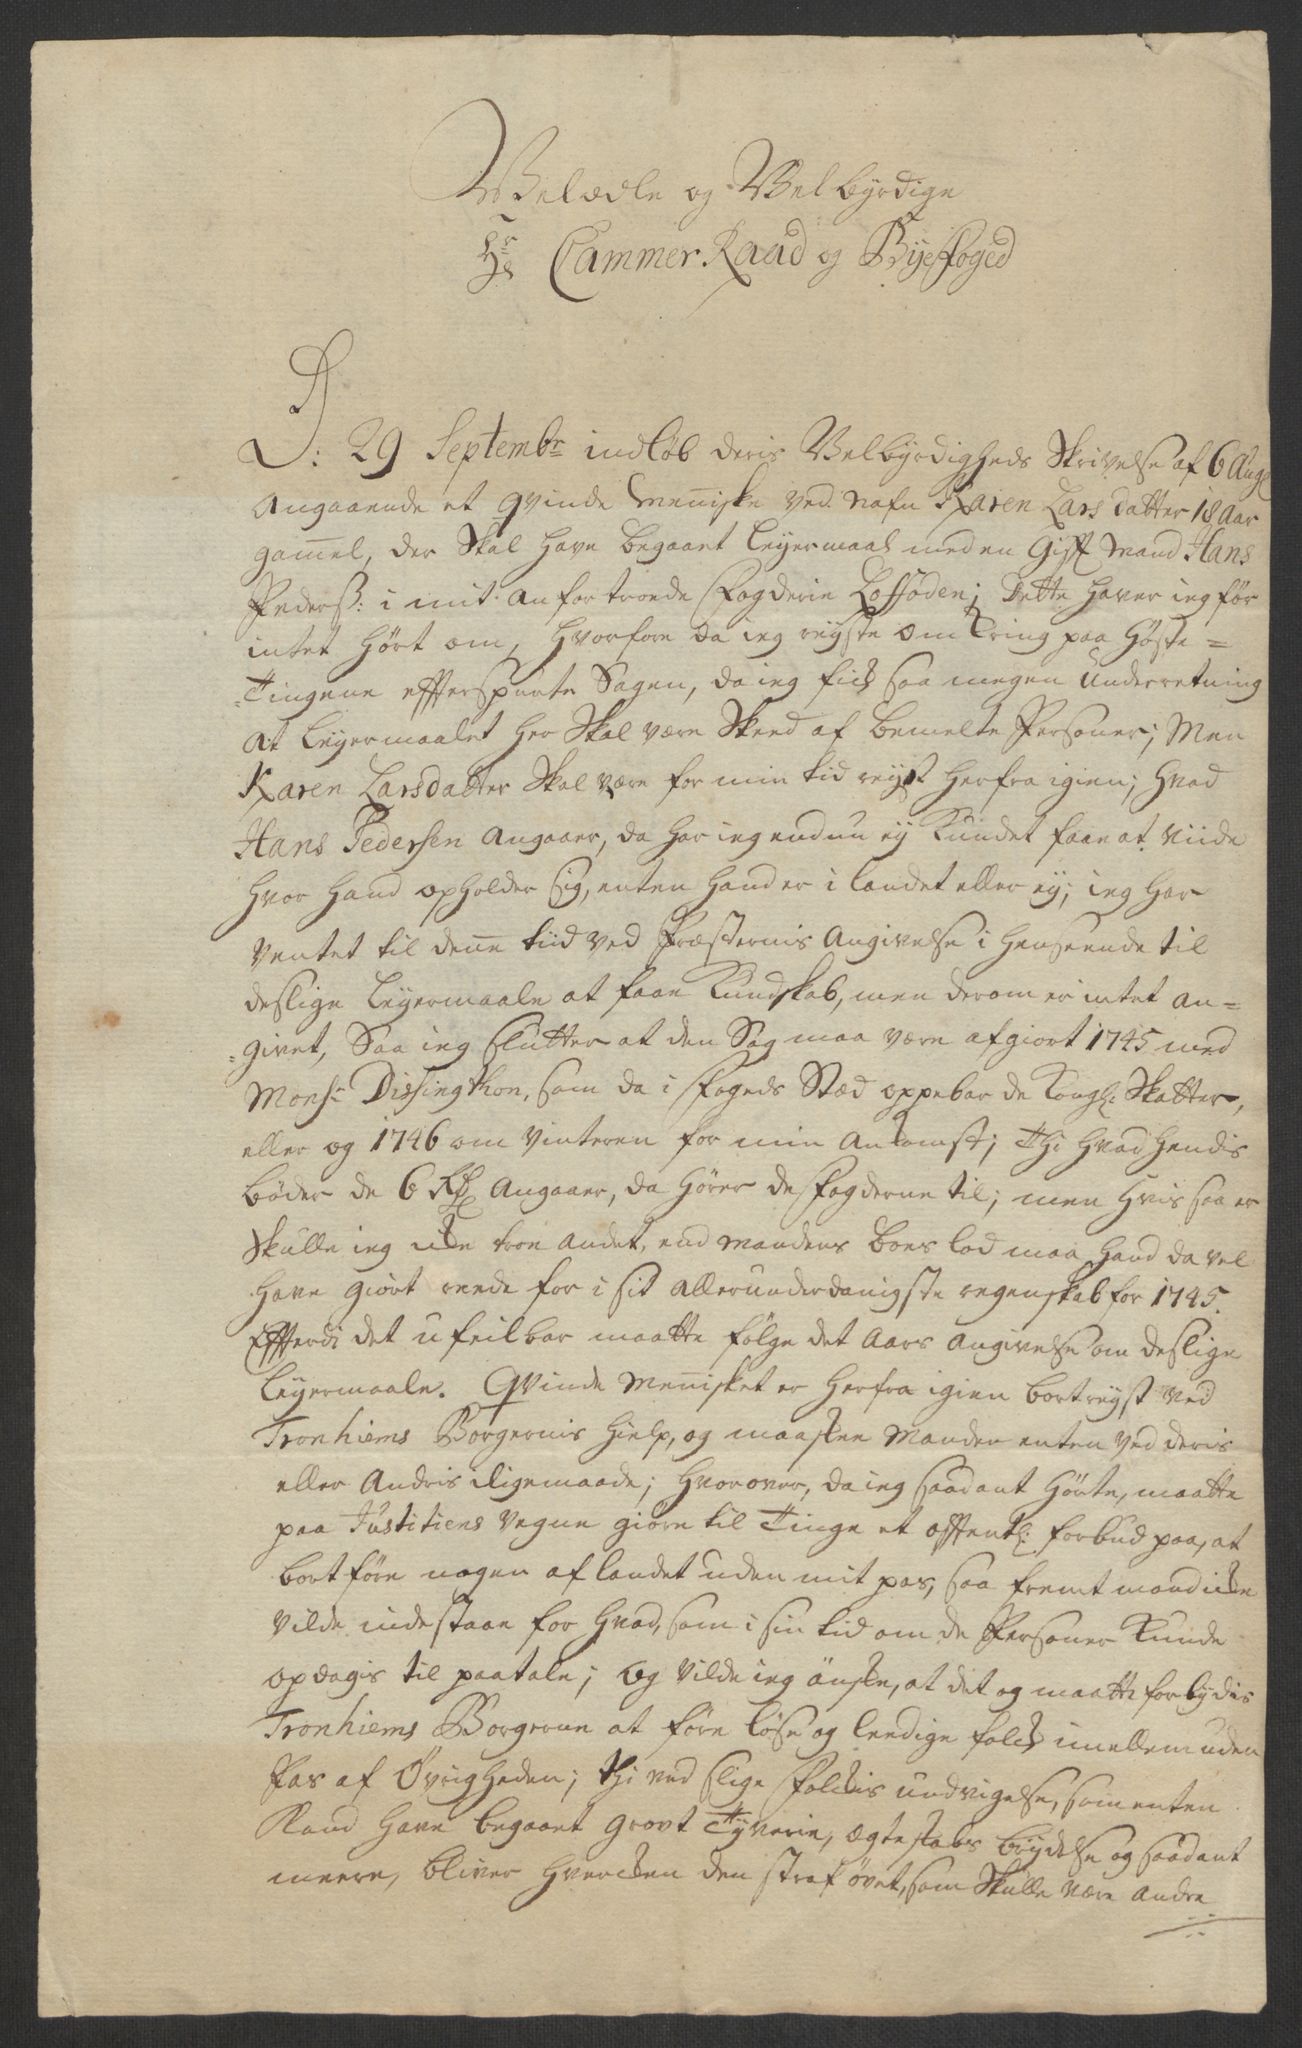 Velædle og Velbyrdige
Hr Cammer Raad og Byefoged
D: 29 Septembr indløb deris Velbyrdigheds Skrivelse af 6 Augl
Angaaende et qvinde Meniske ved Nafn Karen Larsdatter 18 Aar
gamel, der Skal have begaaet Leyermaal med en Gift Mand Hans
Peders: i mit anfortroede Fogderie Lofføden; Dette haver ieg før
intet hørt om, hvorfore da ieg reyste omkring paa Høste=
=Tingene effterspurte Sagen, da ieg fick saa megen Underretning
At Leyermaalet her Skal være Skeed af bemelte Personer; Men
Karen Larsdatter Skal være for min tid reyst herfra igien; hvad
Hans Pedersen Angaaer, da har ieg endnu ey Kundet faae at viide
hvor hand opholder sig, enten hand er i landet eller ey; ieg har
Ventet til dene tiid ved Præsternis Angivelse i henseende til
deslige Leyermaale at faae Kundskab, men derom er intet an=
=givet, Saa ieg slutter at den Sag maa være afgiort 1745 med
Monsr Dissingthon, som da i Fogeds Stæd oppebar de Kongl: Skatter,
eller og 1746 om Vinteren for min Ankomst; Thi hvad hendis
bøder de 6 Rd Angaaer, da hører de Fogderne til; men hvis saa er
Skulle ieg icke troe andet, end Mandens boes lod maa hand da vel
have giort reede for i sit allerunderdanigste regenskab for 1745.
Effterdi det ufeilbar maatte følge det Aars Angivelse om deslige
Leyermaale. Qvinde Menisket er herfra igien bortreyst ved
Tronhiems Borgernis hielp, og maaskee Manden enten ved deris
eller Andris Ligemaade; hvorover, da ieg saadant hørte, maatte
paa Justitiens Vegne giøre til Tinge et offentl: forbud paa, at
bortføre nogen af landet uden mit pas, saa fremt mand icke
vilde indestaae for hvad, som i sin tid om de Personer Kunde
opdagis til paatale; og vilde ieg ønske, at det og maatte forbydis
Tronhiems Borgerne at føre løse og leedige folck imellem uden
Pas af Øvrigheden; thi ved slige Folckis undvigelse, som enten
Kand have begaaet grovt Tyverie, Ægteskabs brydelse og saadant
meere, bliver hvercken den straf øvet, som Skulle være Andre